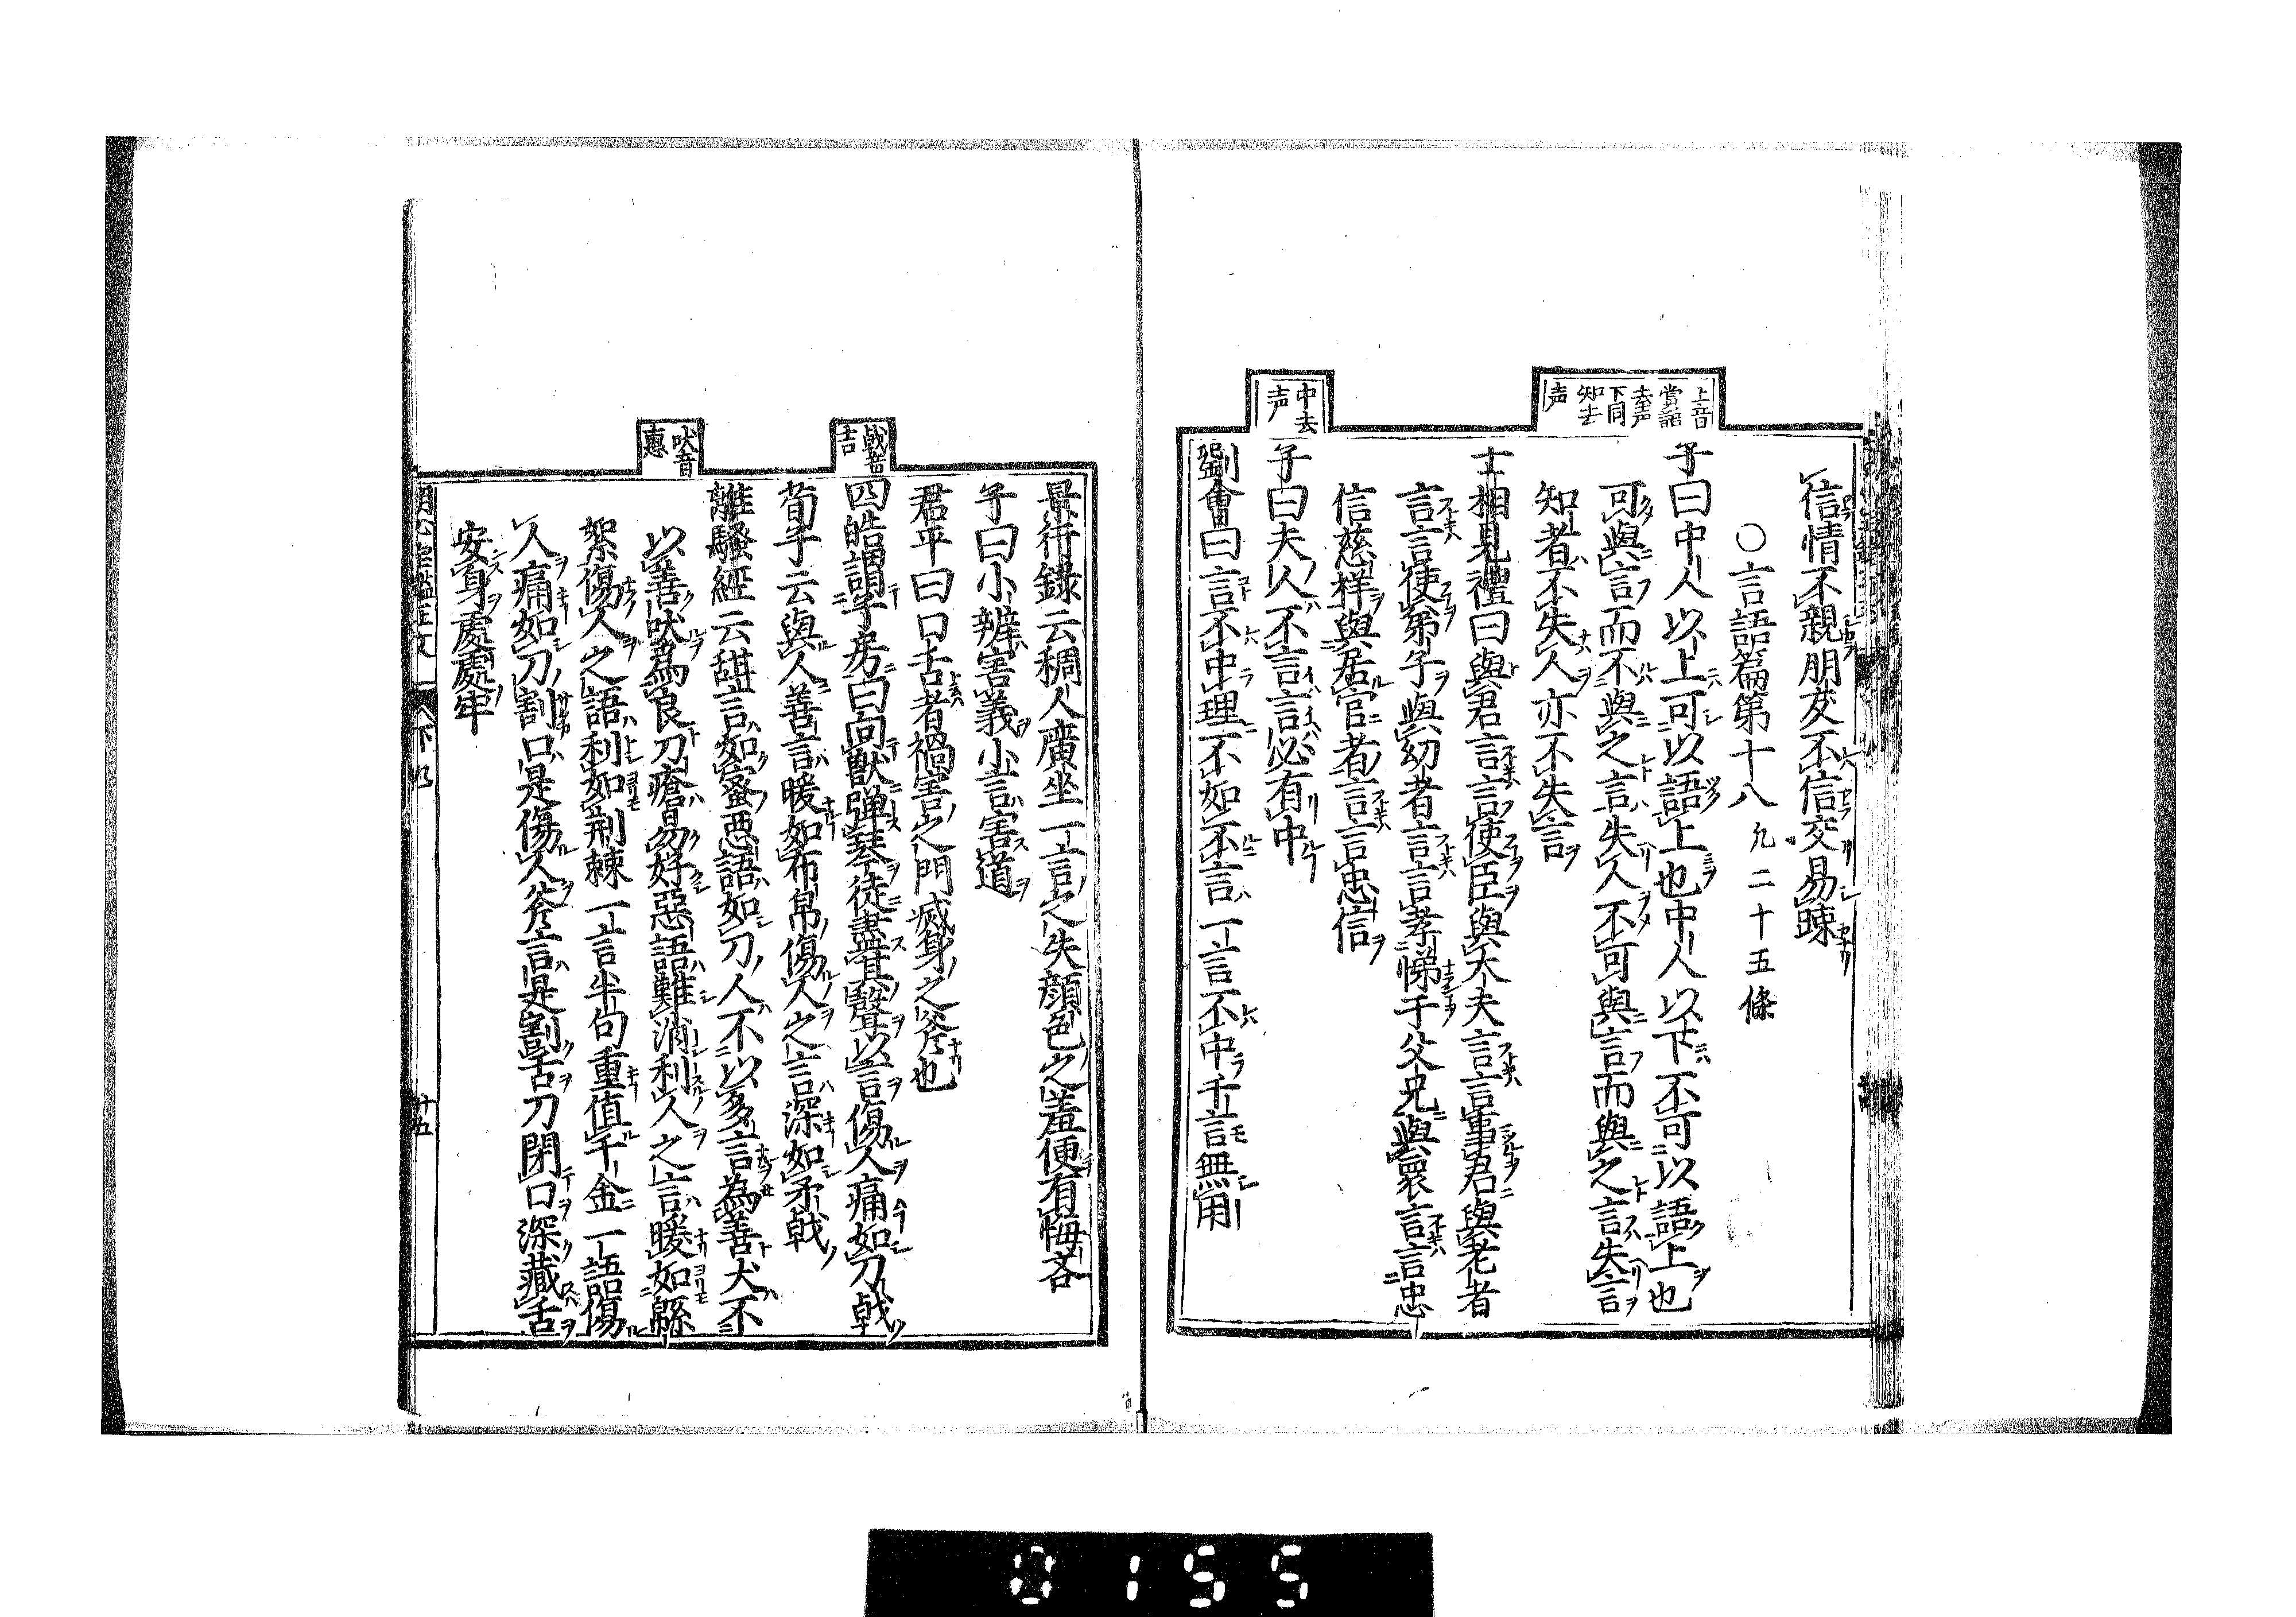 上音
嘗語
去声
下同
知去
声
中去
声
信情不親朋友不信交易踈
○言語篇第十八 凡二十五條
子曰中人以上可以語上也中人以下不可以語上也
可與言而不與之言失人不可與言而與之言失言
知者不失人亦不失言
士相見禮曰與君言言使臣與大夫言言事君與老者
言言使弟子與幼者言言孝悌于父兄與衆言言忠
信慈祥與居官者言言忠信
子曰夫人不言言必有中
劉會曰言不中理不如不言一言不中千言無用
戟音
吉
吠音
惠
景行録云稠人廣坐一言之失顔色之羞便有悔吝
子曰小辨害義小言害道
君平曰口舌者禍害之門滅身之斧也
四皓謂子房曰向獸弾琴徒盡其聲以言傷人痛如刀戟
荀子云與人善言暖如布帛傷人之言深如矛戟
離騷經云甜言如蜜悪語如刀人不以多言為善犬不
以善吠為良刀瘡易好惡語難消利人之言暖如緜
絮傷人之語利如荆棘一言半句重值千金一語傷
人痛如刀割口是傷人斧言是割舌刀閉口深藏舌
安身處處牢
下
十五
0155